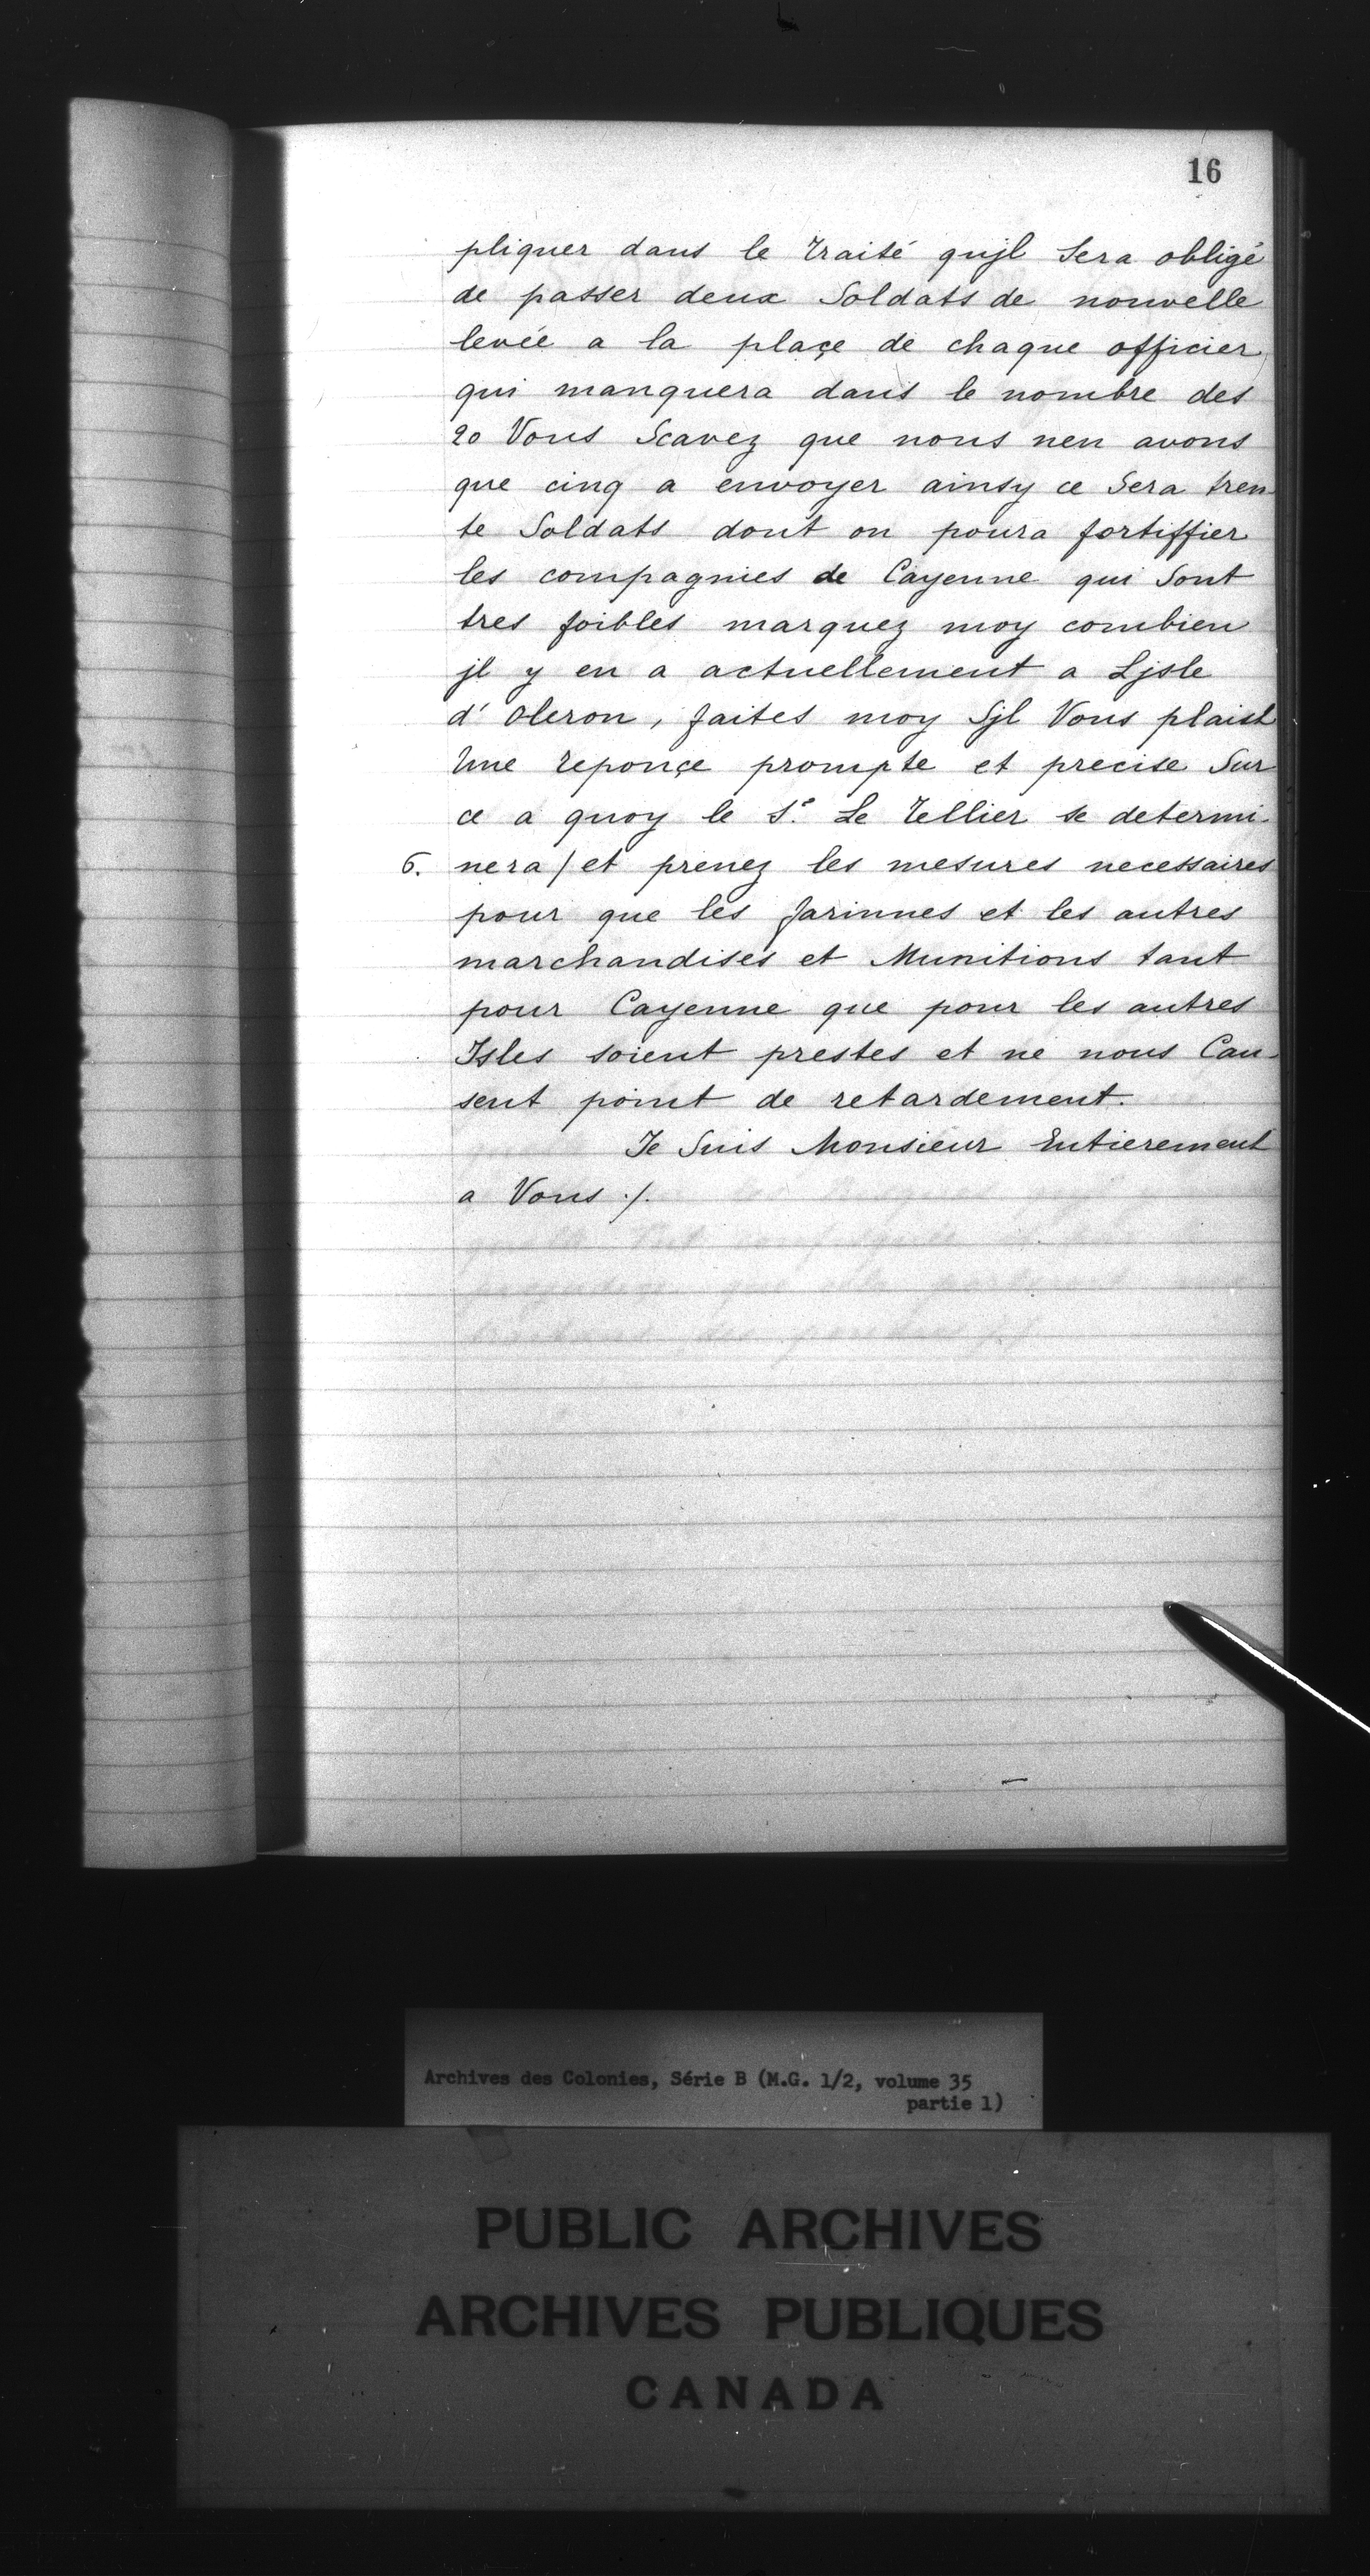 16
pliquer dans le Traité qujl Sera obligé
de passer deux Soldats de nouvelle
levée a la plaçe de chaque officier
qui manquera dans le nombre des
20 Vous Scavez que nous nen avons
que cinq a envoyer ainsy ce Sera tren
te Soldats dont on poura fortiffier
les compagnies de Cayenne qui Sont
tres foibles marquez moy combien
jl y en a actuellement a Ljsle
d' Oleron, faites moy Sjl Vous plaist
Une reponçe prompte et precise Sur
ce a quoy le Sr. Le Tellier se determi-
6. nera / et prenez les mesures necessaires
pour que les farinnes et les autres
marchandises et Munitions tant
pour Cayenne que pour les autres
Isles soient prestes et ne nous Cau-
sent point de retardement.
Je Suis Monsieur Entierement
a Vous ./.
Archives des Colonies, Série B (M.G. 1/2, volume 35
partie 1)
PUBLIC ARCHIVES
ARCHIVES PUBLIQUES
CANADA